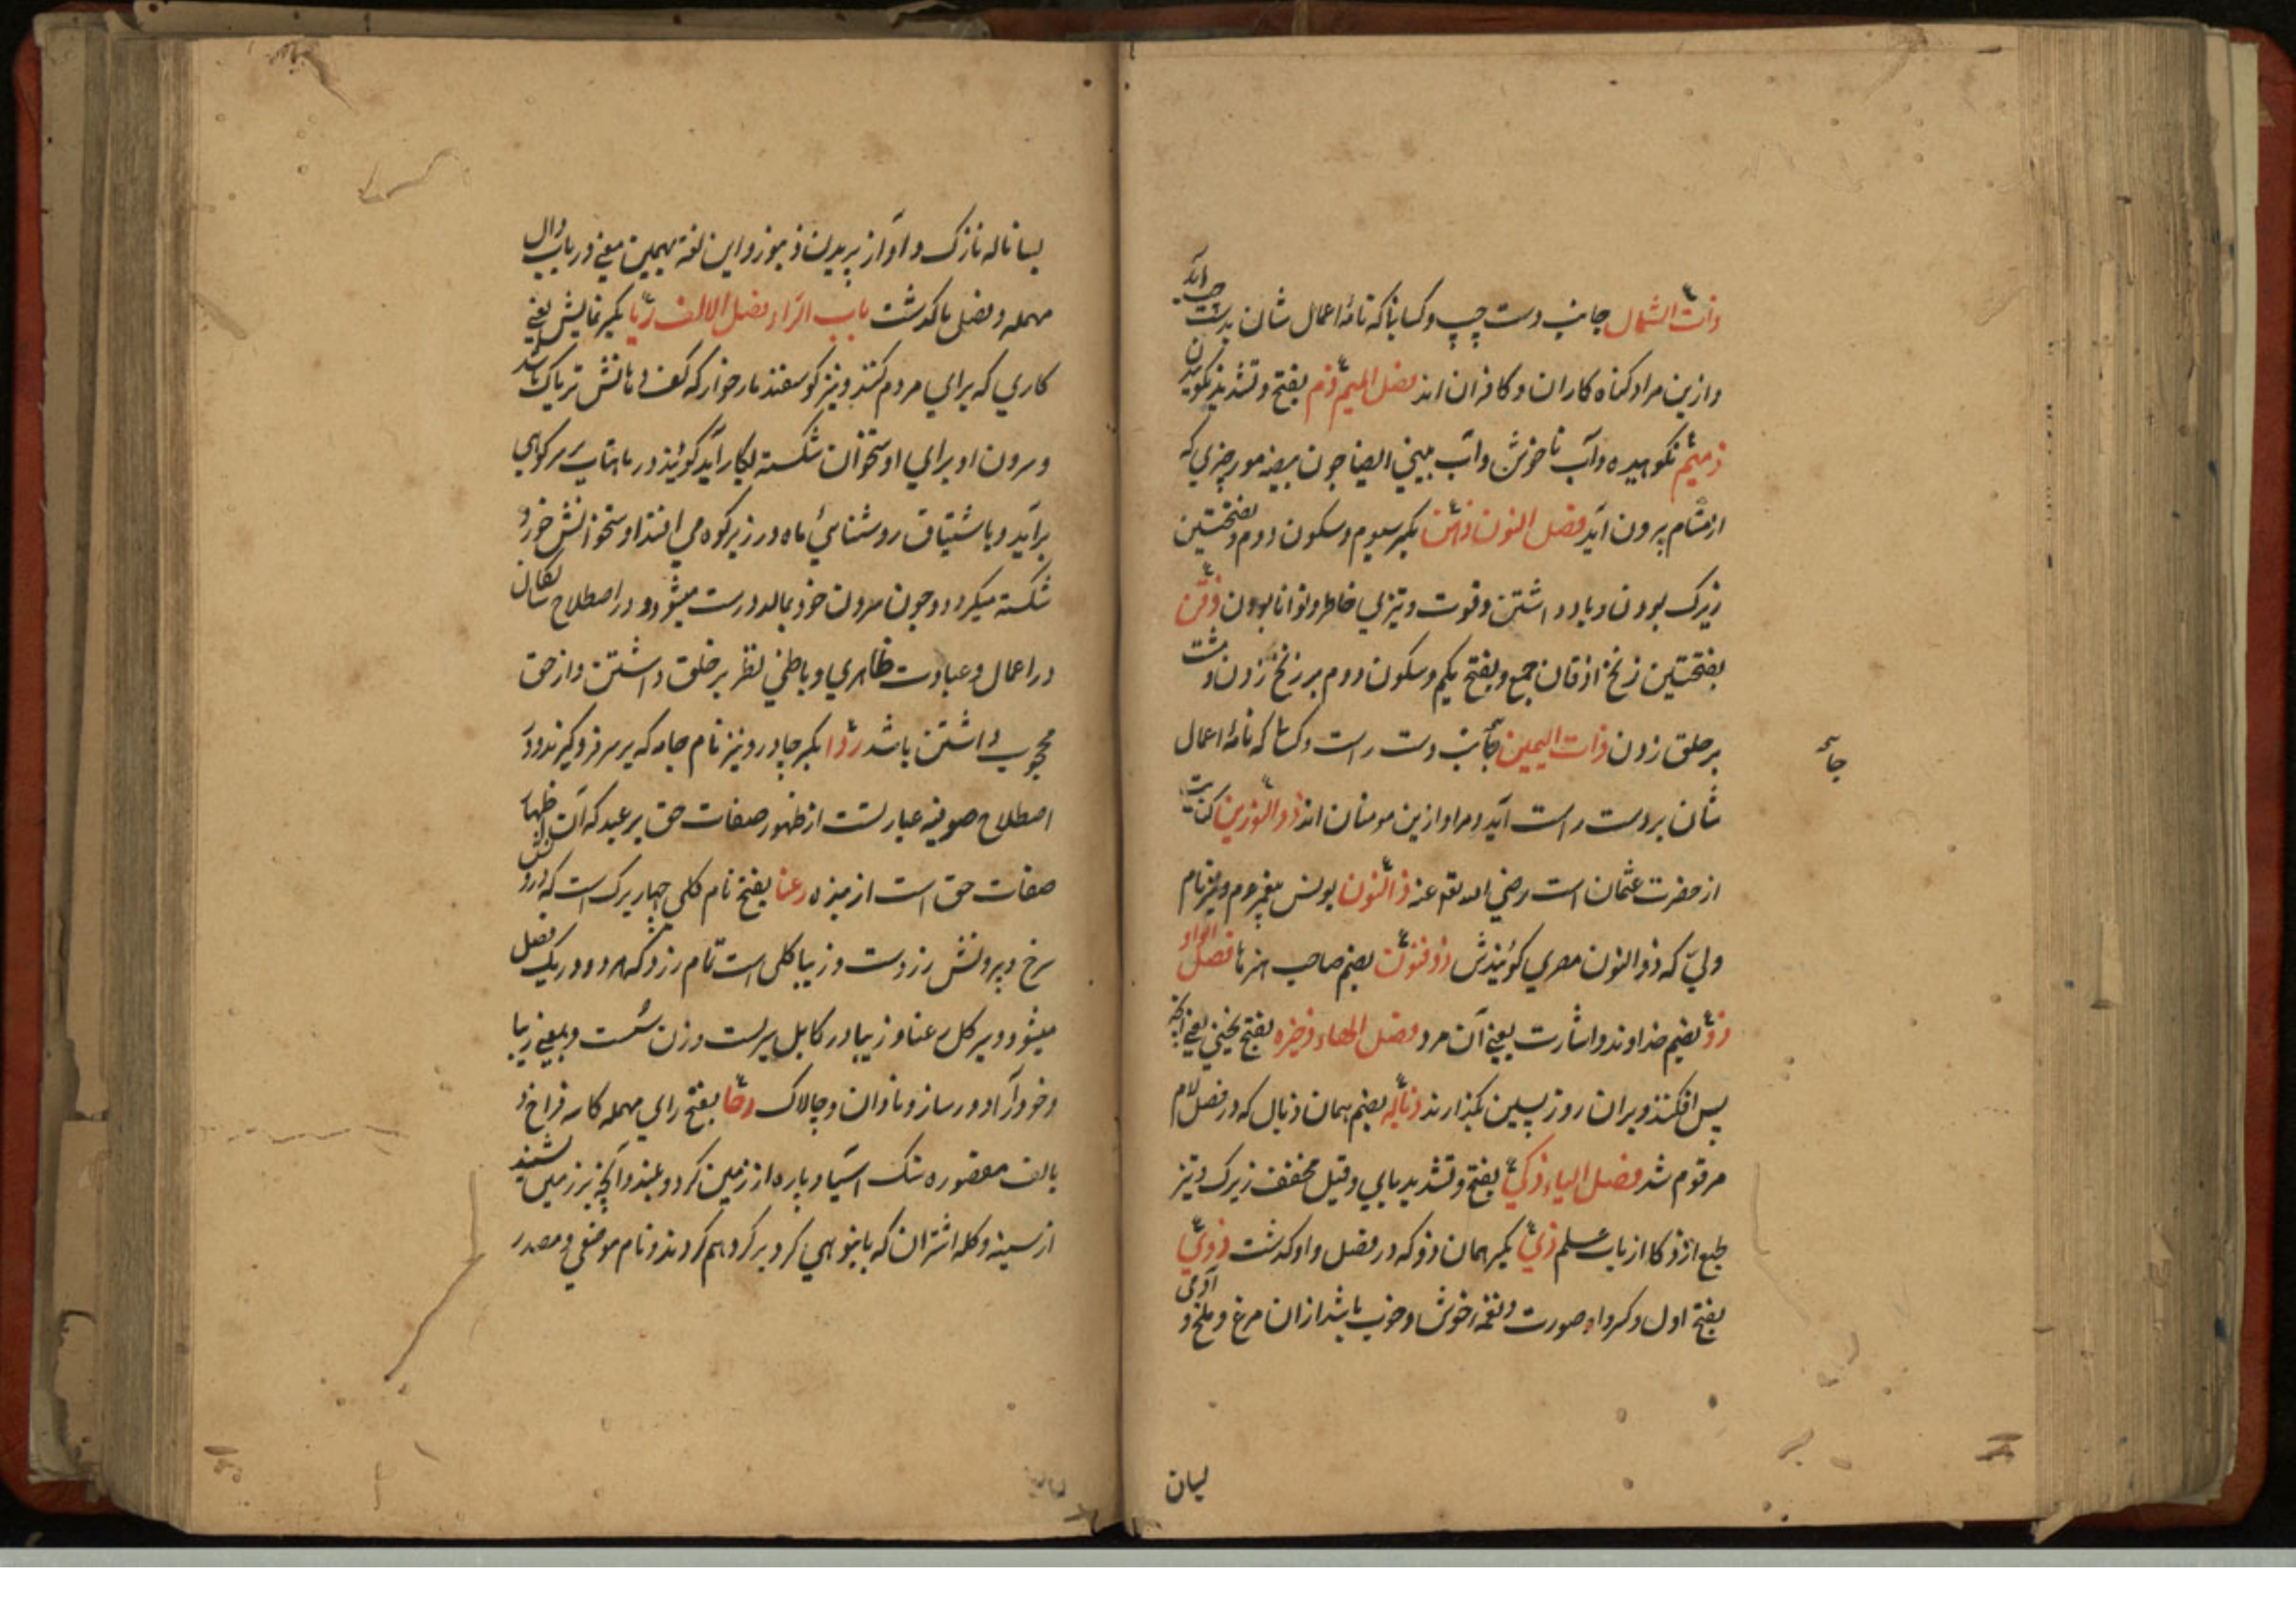 ذات الشمال جانب دست چپ و کسانیکه نامهٔ اعمال شان بدست چپ آید
و ازین مراد کناه کاران و کافران اند فصل المیم ذم بفتح و تشدید نکوهیدن
ذمیم نکوهیده و آب ناخوش و آب بینی ایضا چون بیضه مور چیزی که
از مشام برون آید فصل النون ذهن بکسر یکم و سکون دوم و بفتحتین
زیرک بودن و یاد داشتن و قوت و تیزی خاطر و توانا بودن ذقن
بفتحتین زنخ اذقان جمع و بفتح یکم و سکون دوم بر زنخ زدن و مشت
بر حلق زدن ذات الیمین جانب دست راست و کسانکه نامهٔ اعمال
جانب
شان بر دست راست آید و مراد ازین مومنان اند ذو النورین کنایت
از حضرت عثمان است رضی الله تع عنه ذا النون یونس پیغمبر عم و نیز نام
ولی که ذو النون مصری کویندش ذو فنون بضم صاحب هنرها فصل الواو
ذو بضم خداوند و اشارت یعنی آن مرد فصل الهاء ذخیره بفتح یخنی یعنی آنچه
پس افکنند و بران روز پسین بکذارند ذباله بضم همان ذبال که در فصل لام
مرقوم شد فصل الیاء ذکی بفتح و تشدید یای و قیل مخفف زیرک و تیز
طبع از ذکا از باب علم ذی بکسر همان ذو که در فصل واو کذشت ذوی
بفتح اول و کسر واو صورت و نغمه خوش و خوب باشد از ان مرغ و ملخ و آدمی
لسان
بسا ناله نازک و آواز بریدن ذ یوز و این لغة بهمین معنی در باب دال
مهمله و فصل یا کذشت باب الراء فصل الالف ریا بکسر نمایش یعنی
کاری که برای مردم کنند و نیز کوسفند مار خوار که کف دهانش تریاک باشد
و سرون او برای اوستخوان شکسته بکار آید کویند در ماهتاب بر سر کوهی
برآید و باشتیاق روشنائی ماه در زیر کوه می افتد اوستخوانش خورد
شکسته میکردد و چون سرون خود بمالد درست میشود و در اصطلاح سالکان
در اعمال و عبادت ظاهری و باطنی نظر بر خلق داشتن و از حق
محجوب داشتن باشد ردا بکسر چادر و نیز نام جامه که بر سر فرو کیرند و در
اصطلاح صوفیه عبارتست از ظهور صفات حق بر عبد که آن اظهار
صفات حق است از بنده رعنا بفتح نام کلی چهار برک است که درونش
سرخ و بیرونش زردست و زیبا کلی است تمام زرد که هر دو در یک فصل
میشود و پر کل رعنا و زیبا در کابل پرست و زن سست و بمعنی زیبا
و خودآرا و درساز و نادان و چالاک رحا بفتح رای مهمله کاسه فراخ و
بالف مقصوره سنک آسیا و پاره از زمین کرد و بلند و آنچه بر زمین نشیند
از سینه و کله اشتران که بانبوهی کرد بر کرد هم کردند و نام موضعی و مصدر